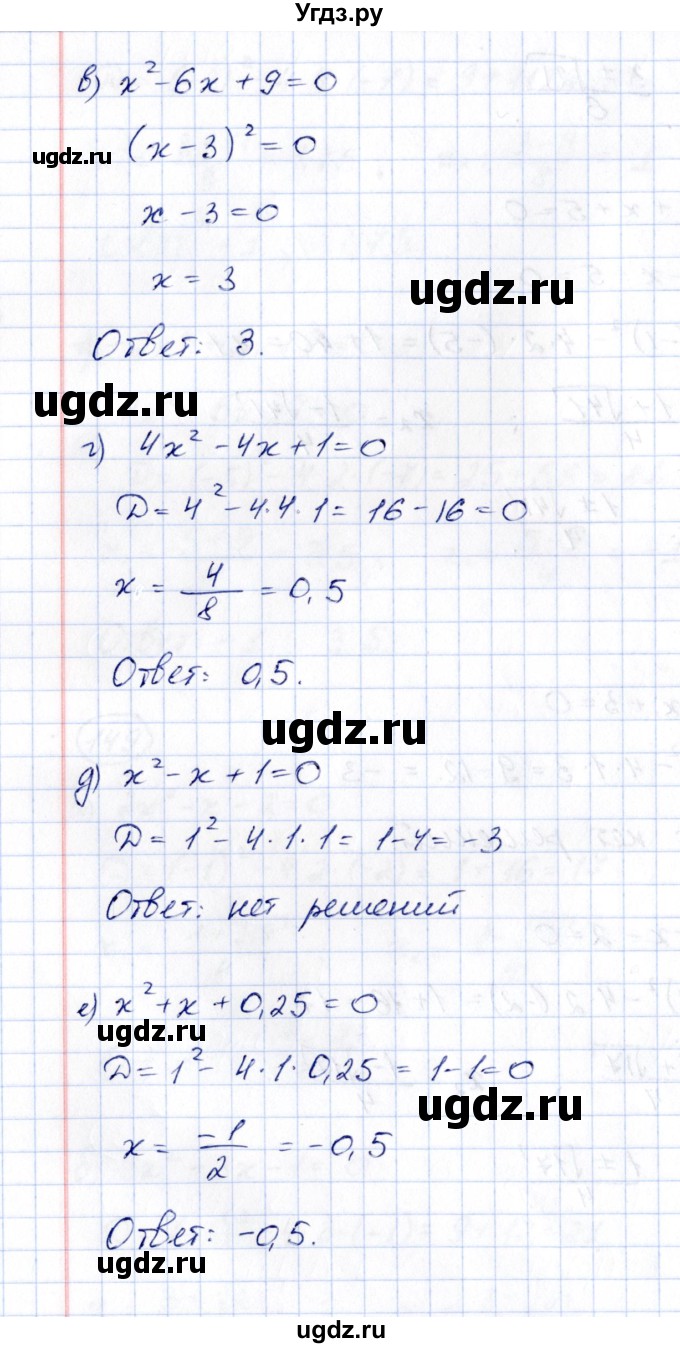 Угдз.ру
в) x² - 6x + 9 = 0
ugdz.ru
(x - 3)² = 0
x - 3 = 0
x = 3
ugdz.ru
Ответ: 3.
ugdz.ru
г) 4x² - 4x + 1 = 0
D = 4² - 4·4·1 = 16 - 16 = 0
x = 4/8 = 0,5
Ответ: 0,5.
ugdz.ru
д) x² - x + 1 = 0
D = 1² - 4·1·1 = 1 - 4 = -3
Ответ: нет решений
е) x² + x + 0,25 = 0
ugdz.ru
D = 1² - 4·1·0,25 = 1 - 1 = 0
ugdz.ru
x = -1/2 = -0,5
Ответ: -0,5.
ugdz.ru
ugdz.ru